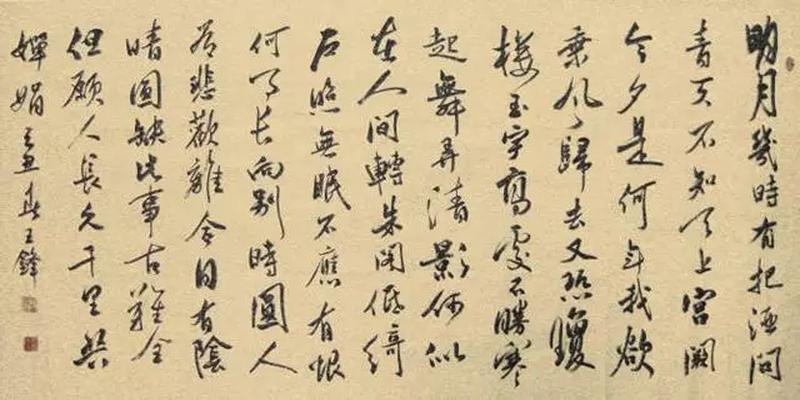 明月幾時有把酒問
青天不知天上宫闕
今夕是何年我欲
乘风歸去又恐瓊
楼玉宇高處不勝寒
起舞弄清影何似
在人间轉朱阁低綺
户照無眠不應有恨
何事长向别時圓人
有悲歡離合月有陰
晴圆缺此事古難全
但願人長久千里共
嬋娟 春王鋒